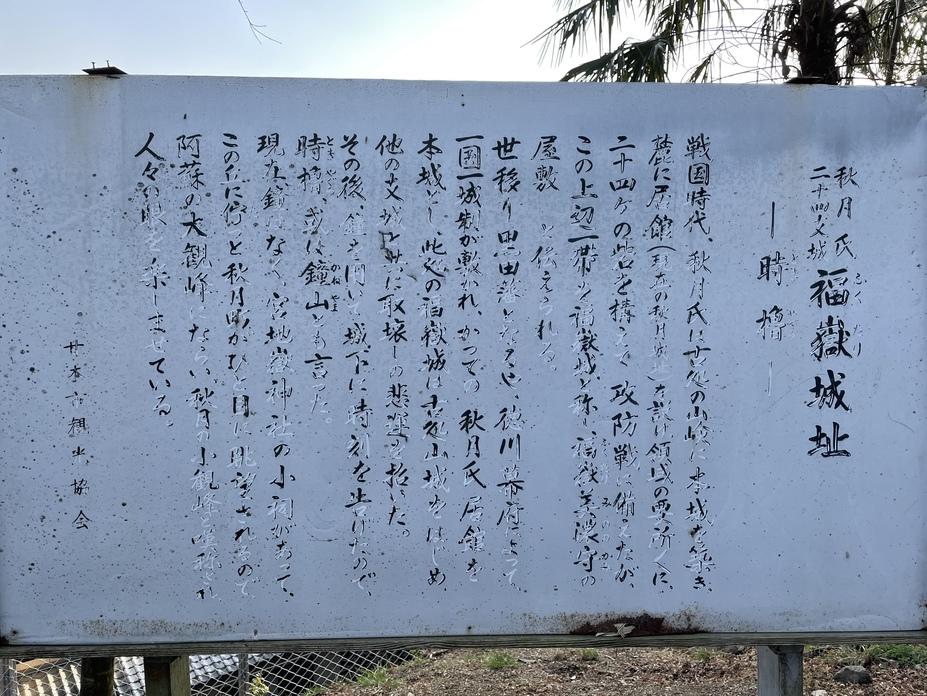 秋月氏
二十四支城
福嶽城址
ふく たけ
― 時櫓 ―
とき やぐら
戦国時代、秋月氏は古処の山嶮に本城を築き、
麓に居館(現在の秋月城址)を設け領域の要所々に
二十四ヶの砦を構えて攻防戦に備えたが、
この上辺一帯を福嶽城と称し福嶽美濃守の
屋敷 と伝えられる。
世移り黒田藩となるや、徳川幕府によって
一国一城制が敷かれ、かつての 秋月氏 居館を
本城とし、此処の福嶽城は古処山城をはじめ
他の支城と共に取壊しの悲運を招いた。
その後、鐘を し城下に時刻を告げたので、
時櫓、或は鐘山とも言った。
とき やぐら
かね やま
現在、鐘はなく、宮地嶽神社の小祠があって、
この丘に佇むと秋月町がひと目に眺望されるので
阿蘇の大観峰にならい、秋月の小観峰と唱称され
人々の眼を楽しませている。
甘木市観光協会